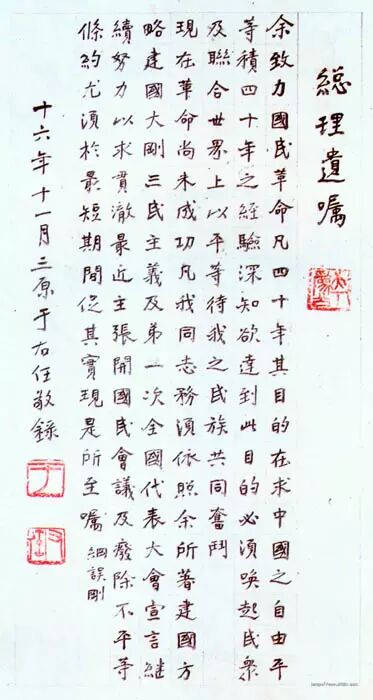 總理遺囑
余致力國民革命凡四十年其目的在求中國之自由平
等積四十年之經驗深知欲達到此目的必須喚起民衆
及聯合世界上以平等待我之民族共同奮鬥
現在革命尚未成功凡我同志務須依照余所著建國方
略建國大剛三民主義及弟一次全國代表大會宣言繼
續努力以求貫澈最近主張開國民會議及廢除不平等
條約尤須於最短期間促其實現是所至囑 綱誤剛
十六年十一月三原于右任敬錄